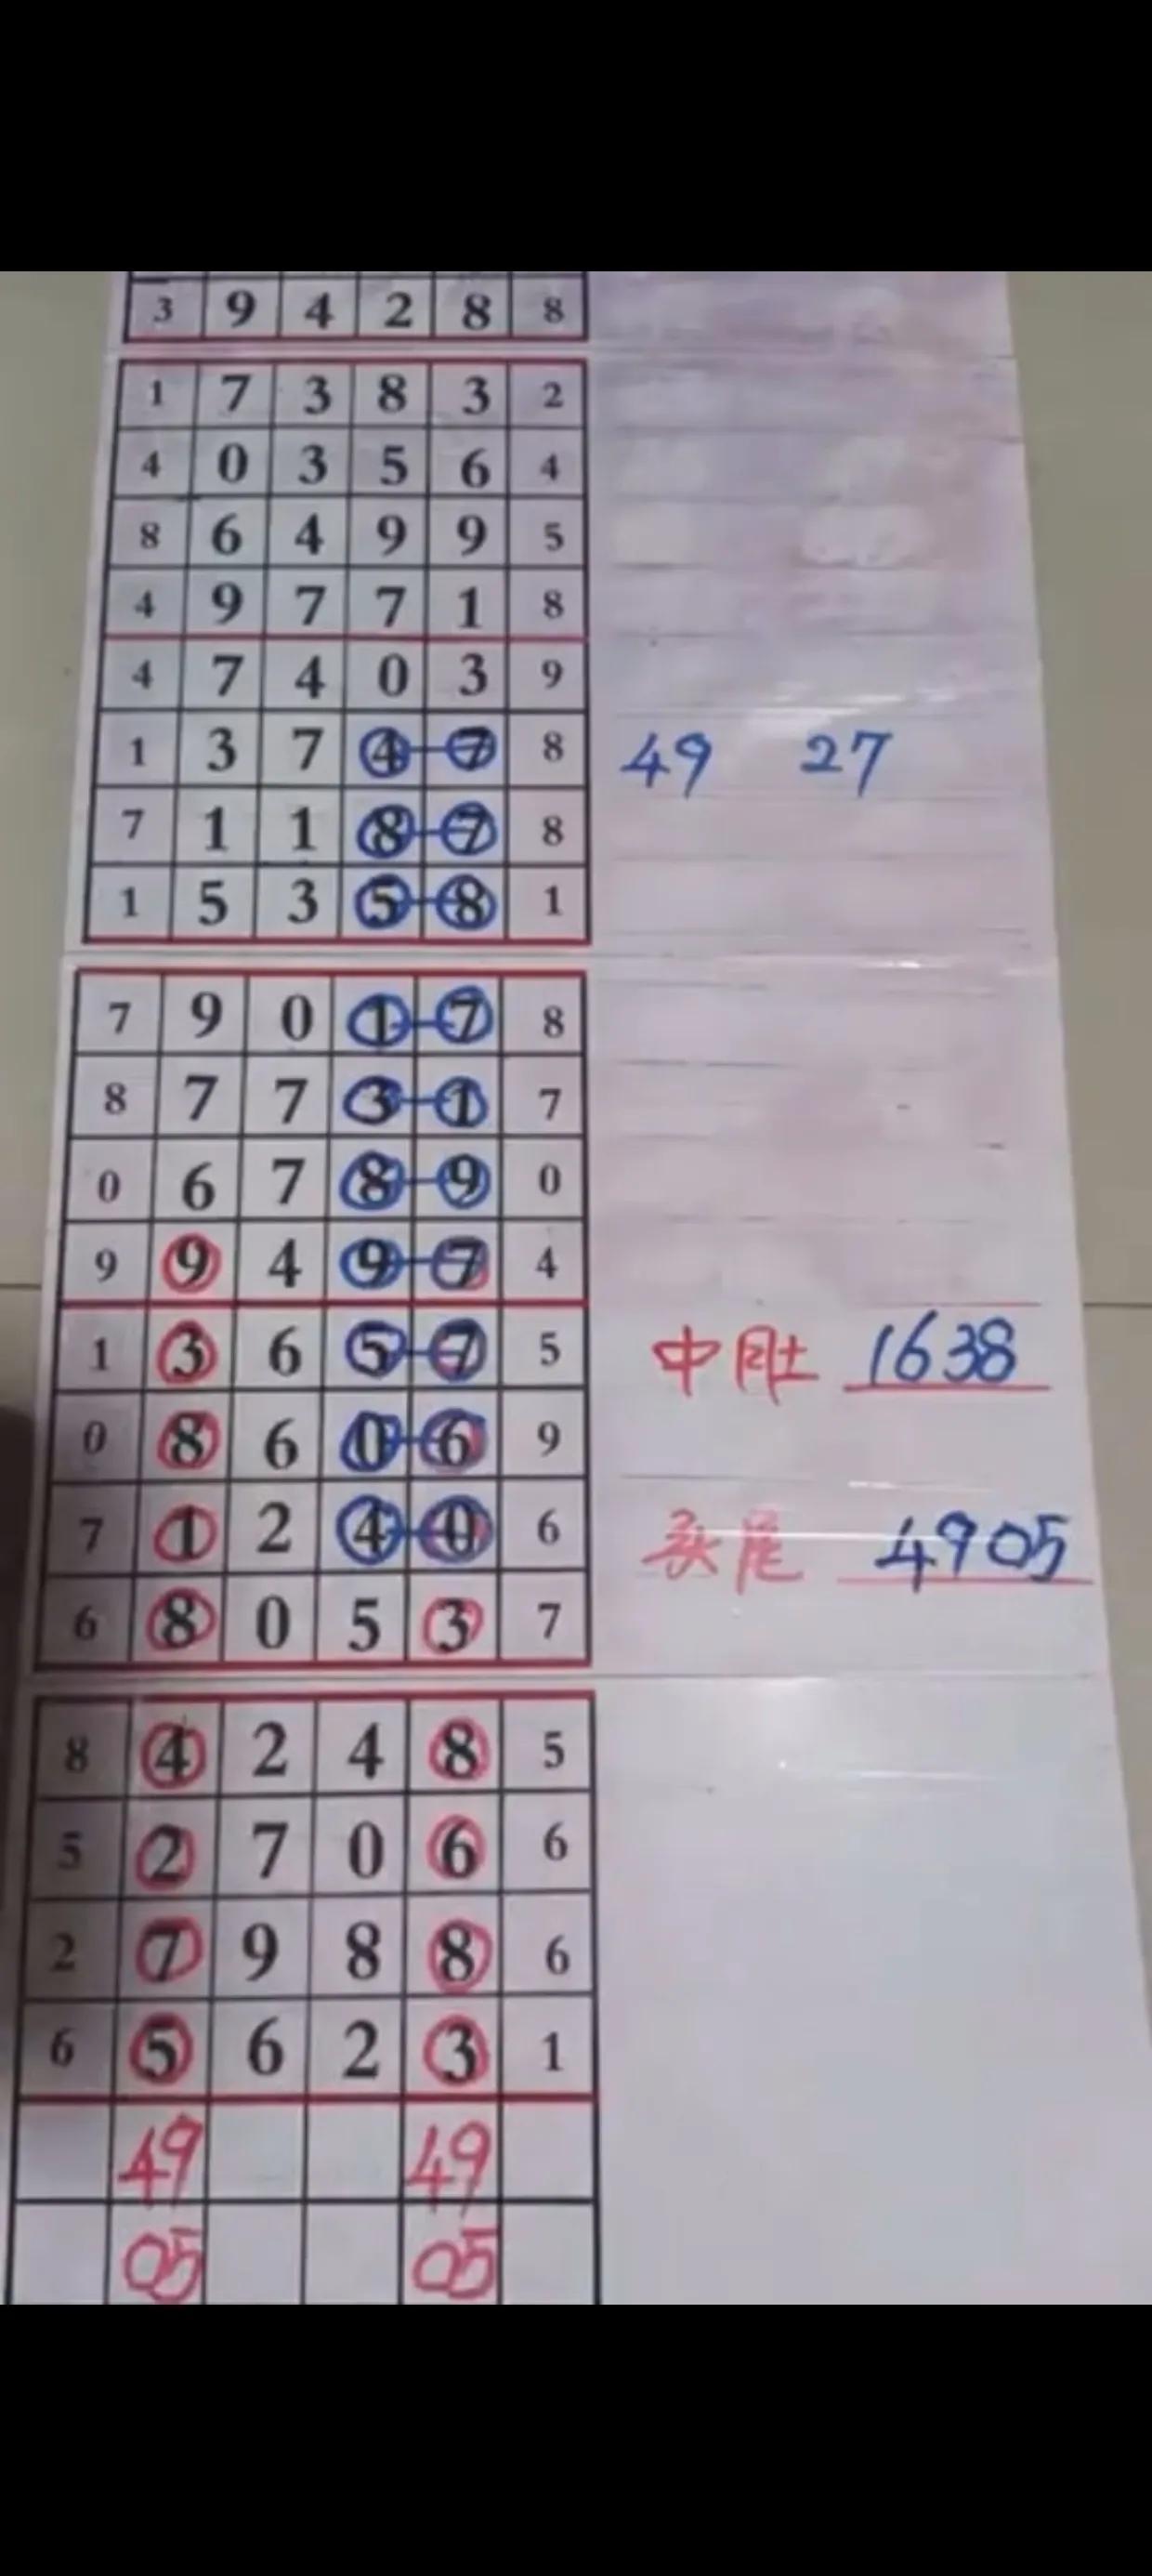 3 9 4 2 8 8
1 7 3 8 3 2
4 0 3 5 6 4
8 6 4 9 9 5
4 9 7 7 1 8
4 7 4 0 3 9
1 3 7 4 7 8 49 27
7 1 1 8 7 8
1 5 3 5 8 1
7 9 0 1 7 8
8 7 7 3 1 7
0 6 7 8 9 0
9 9 4 9 7 4
1 3 6 5 7 5 中肚 1638
0 8 6 0 6 9
7 1 2 4 0 6 头尾 4905
6 8 0 5 3 7
8 4 2 4 8 5
5 2 7 0 6 6
2 7 9 8 8 6
6 5 6 2 3 1
49 49
05 05